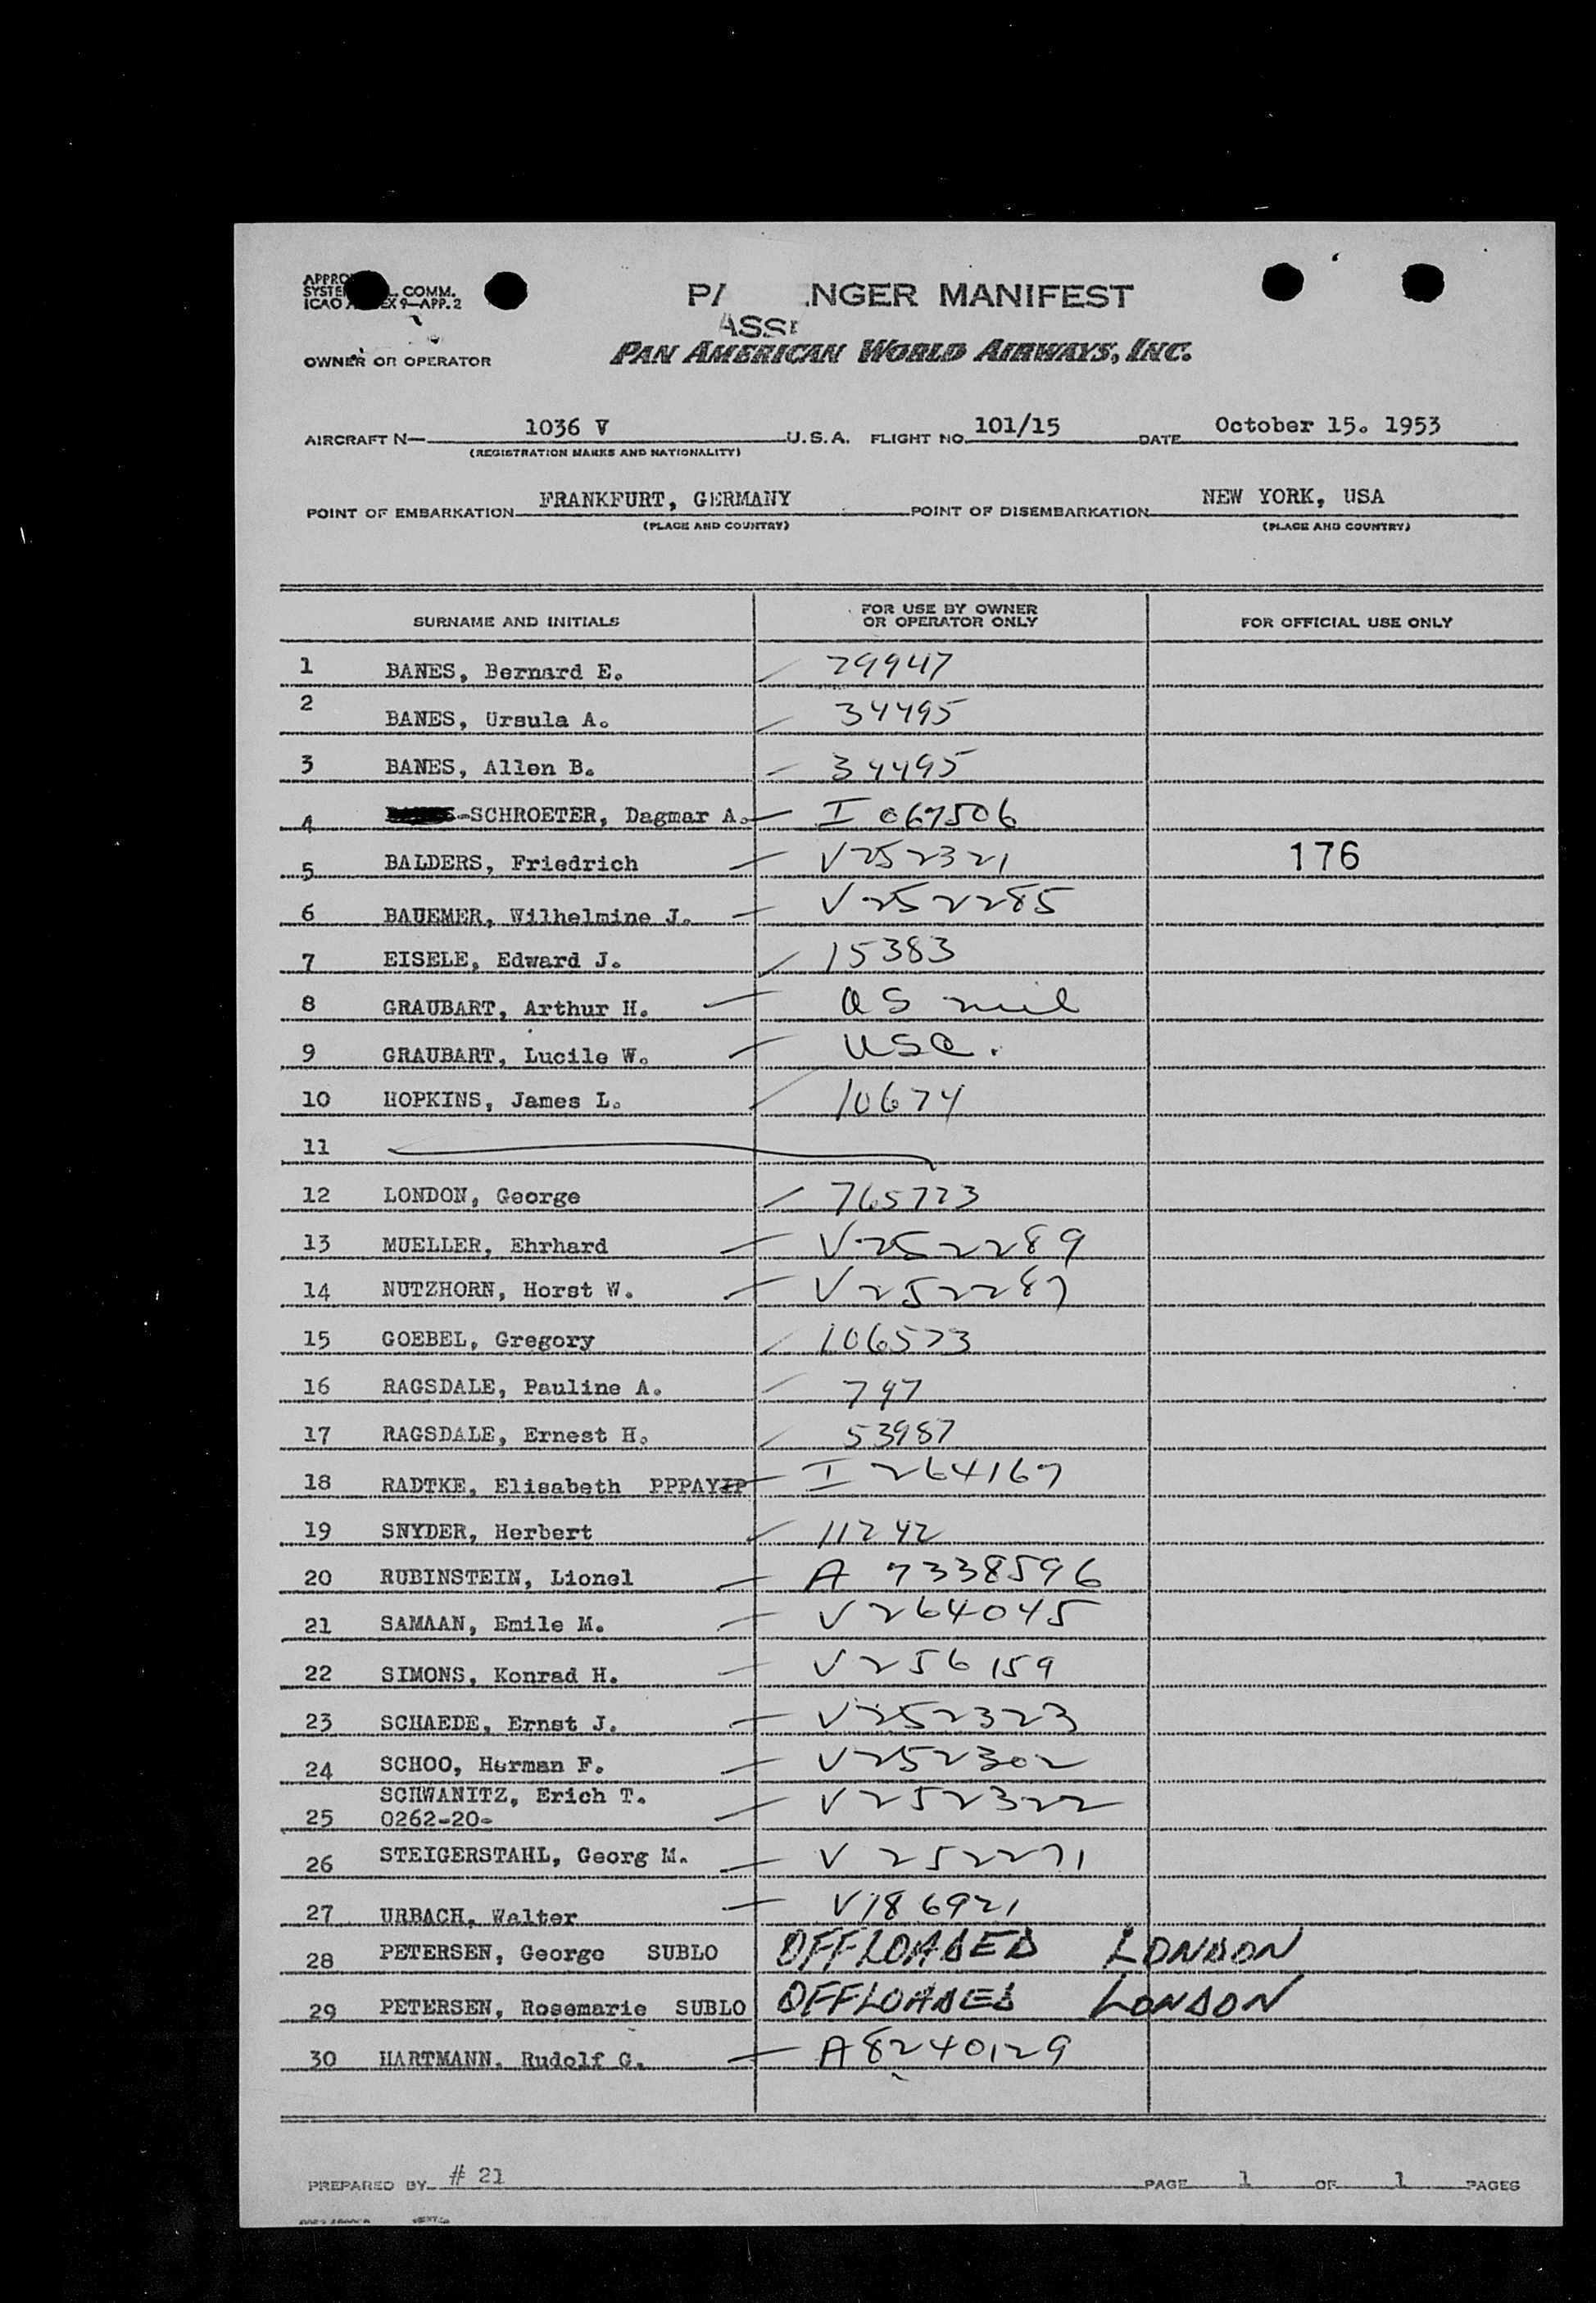 PASSENGER MANIFEST
ICAO ANNEX 9—APP. 2
OWNER OR OPERATOR PAN AMERICAN WORLD AIRWAYS, INC.
AIRCRAFT N— 1036 V U.S.A. FLIGHT NO. 101/15 DATE October 15. 1953
(REGISTRATION MARKS AND NATIONALITY)
POINT OF EMBARKATION FRANKFURT, GERMANY POINT OF DISEMBARKATION NEW YORK, USA
(PLACE AND COUNTRY) (PLACE AND COUNTRY)
SURNAME AND INITIALS FOR USE BY OWNER OR OPERATOR ONLY FOR OFFICIAL USE ONLY
1 BANES, Bernard E. 29947
2 BANES, Ursula A. 34495
3 BANES, Allen B. 34495
4 -SCHROETER, Dagmar A. I 067506
5 BALDERS, Friedrich V252321 176
6 BAUEMER, Wilhelmine J. V252285
7 EISELE, Edward J. 15383
8 GRAUBART, Arthur H. US mil
9 GRAUBART, Lucile W. USC.
10 HOPKINS, James L. 10674
11
12 LONDON, George 765723
13 MUELLER, Ehrhard V252289
14 NUTZHORN, Horst W. V252287
15 GOEBEL, Gregory 106573
16 RAGSDALE, Pauline A. 797
17 RAGSDALE, Ernest H. 53987
18 RADTKE, Elisabeth PPPAYIP I 264167
19 SNYDER, Herbert 11242
20 RUBINSTEIN, Lionel A 7338596
21 SAMAAN, Emile M. V264045
22 SIMONS, Konrad H. V256159
23 SCHAEDE, Ernst J. V252323
24 SCHOO, Herman F. V252302
SCHWANITZ, Erich T. V252322
25 0262-20-
26 STEIGERSTAHL, Georg M. V 252271
27 URBACH, Walter V186921
28 PETERSEN, George SUBLO OFFLOADED LONDON
29 PETERSEN, Rosemarie SUBLO OFFLOADED LONDON
30 HARTMANN, Rudolf G. A8240129
PREPARED BY # 21 PAGE 1 OF 1 PAGES